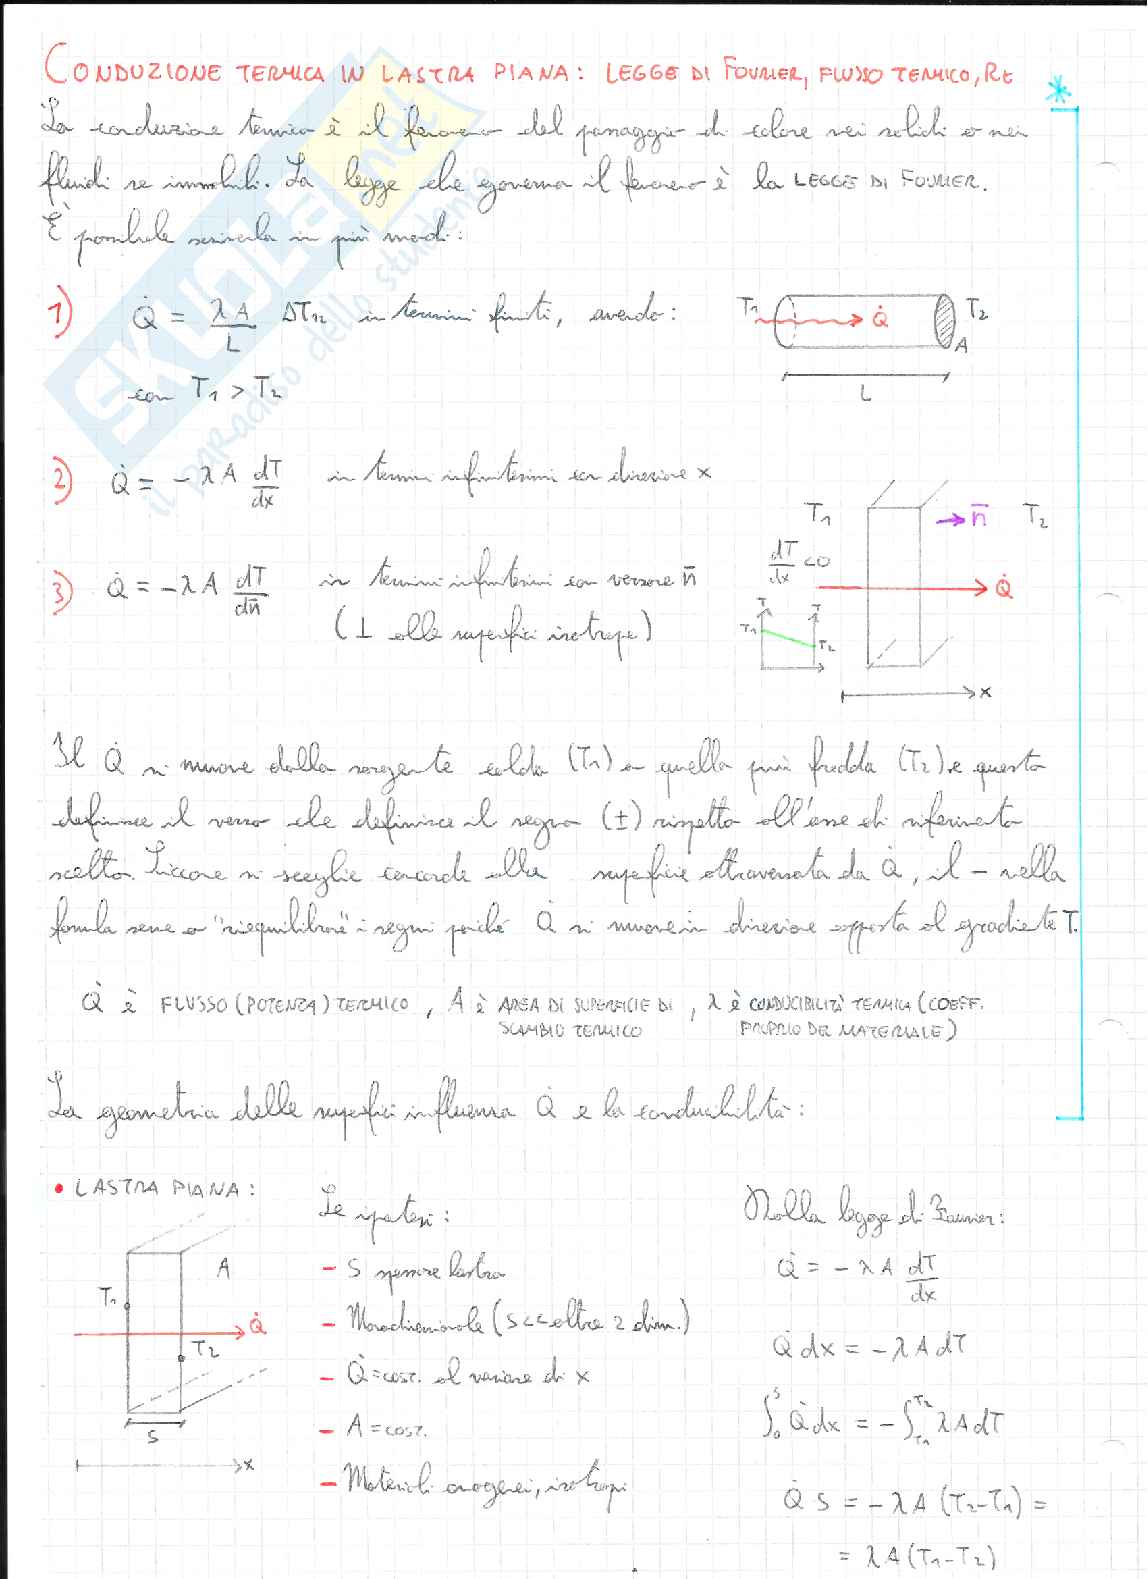 CONDUZIONE TERMICA IN LASTRA PIANA: LEGGE DI FOURIER, FLUSSO TERMICO, Rt *
La conduzione termica è il fenomeno del passaggio di calore nei solidi o nei
fluidi se immobili. La legge che governa il fenomeno è la LEGGE DI FOURIER.
È possibile scriverla in più modi:
1) Q̇ = λ A / L ΔT₁₂ in termini finiti, avendo:
con T₁ > T₂
T₁ Q̇ T₂
A
L
2) Q̇ = - λ A dT/dx in termini infinitesimi con direzione x
3) Q̇ = - λ A dT/dn̄ in termini infinitesimi con versore n̄
(⊥ alle superfici isotrope)
T₁ n̄ T₂
dT/dx <0
Q̇
T T
T₁ T₂
x
Il Q̇ si muove dalla sorgente calda (T₁) a quella più fredda (T₂) e questo
definisce il verso che definisce il segno (±) rispetto all'asse di riferimento
scelto. Siccome si sceglie concorde alla superficie attraversata da Q̇, il - nella
formula serve a "riequilibrare" i segni poiché Q̇ si muove in direzione opposta al gradiente T.
Q̇ è FLUSSO (POTENZA) TERMICO, A è AREA DI SUPERFICIE DI SCAMBIO TERMICO, λ è CONDUCIBILITÀ TERMICA (COEFF. PROPRIO DEL MATERIALE)
La geometria delle superfici influenza Q̇ e la conducibilità:
• LASTRA PIANA:
A
T₁
Q̇
T₂
S
x
Le ipotesi:
- S spessore lastra
- Monodimensionale (S<< altre 2 dim.)
- Q̇=cost. al variare di x
- A=cost.
- Materiali omogenei, isotropi
Dalla legge di Fourier:
Q̇ = - λ A dT/dx
Q̇ dx = - λ A dT
∫₀ˢ Q̇ dx = - ∫_T₁^T₂ λ A dT
Q̇ S = - λ A (T₂-T₁) =
= λ A (T₁-T₂)
SKUOLA.net
il paradiso dello studente